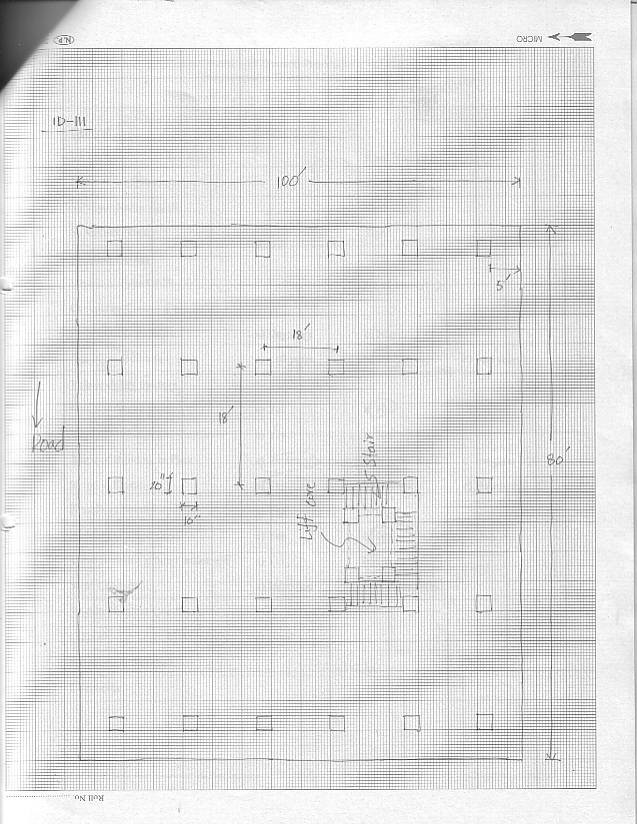 MICRO
N.P.
ID-III
100'
5'
18'
18'
Road
80'
5 Stair
20"
10"
Lift core
Roll No.